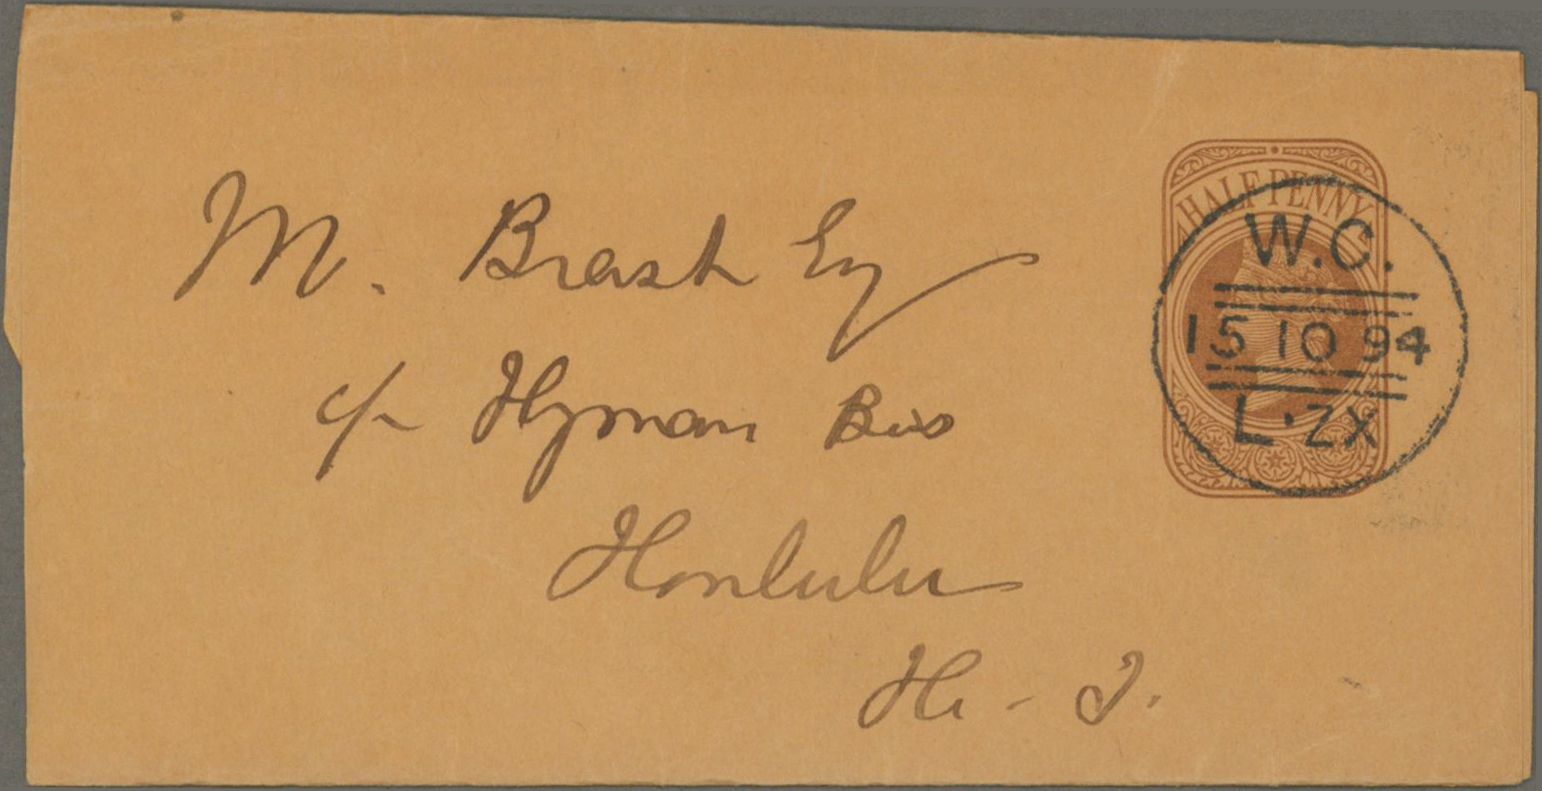 HALF PENNY
W.C.
15 10 94
L·ZX
M. Brash Esq
c/o Hyman Bros
Honlulu
H. I.